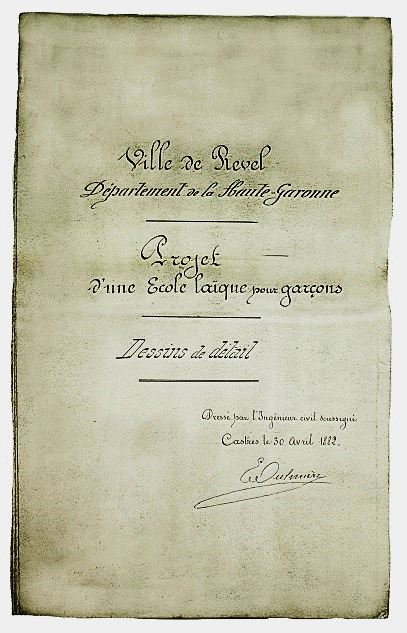 Ville de Revel
Département de la Haute-Garonne
Projet
d'une Ecole laïque pour garçons
Dessins de détail
Dressé par l'Ingénieur civil soussigné
Castres le 30 Avril 1882.